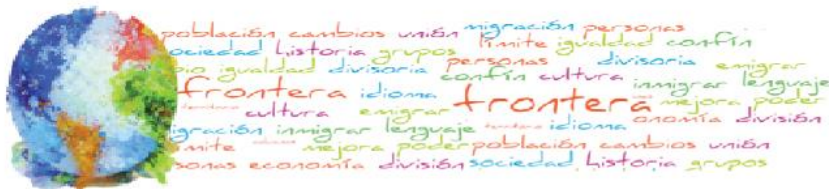 población cambios unión migración personas
sociedad historia grupos límite igualdad confín
bio igualdad divisoria personas divisoria emigrar
confín cultura inmigrar lenguaje
frontera idioma frontera mejora poder
cultura emigrar onomía división
igración inmigrar lenguaje idioma
imite mejora poder población cambios unión
sonas economía división sociedad historia grupos